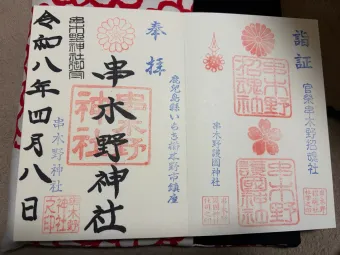 詣証
官祭串木野招魂社
串木野
招魂社
串木野護國神社
串木野
護國神社
奉拝
鹿児島縣いちき串木野市鎮座
串木野神社
串木野
神社
串木野神社
令和八年四月八日
串木野
神社
之印